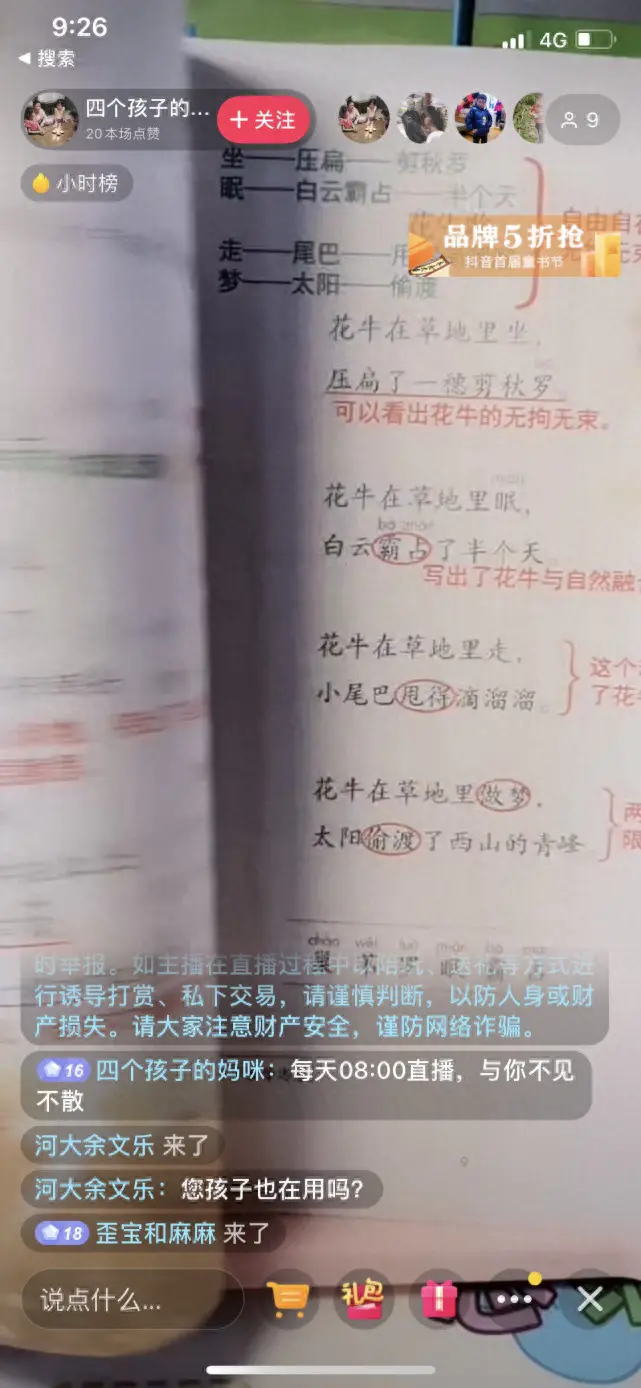 9:26
4G
◀ 搜索
四个孩子的...
20本场点赞
+ 关注
9
小时榜
坐——压扁——剪秋罗
眠——白云霸占——半个天
品牌5折抢
抖音首届童书节
走——尾巴——甩
梦——太阳——偷渡
花牛在草地里坐，
压扁了一穗剪秋罗。
可以看出花牛的无拘无束。
花牛在草地里眠，
白云霸占了半个天。
写出了花牛与自然融
花牛在草地里走，
小尾巴甩得滴溜溜。
这个
了花
花牛在草地里做梦，
太阳偷渡了西山的青峰
两
限
时举报。如主播在直播过程中以陪玩、送礼等方式进
行诱导打赏、私下交易，请谨慎判断，以防人身或财
产损失。请大家注意财产安全，谨防网络诈骗。
16 四个孩子的妈咪：每天08:00直播，与你不见
不散
河大余文乐 来了
河大余文乐：您孩子也在用吗？
18 歪宝和麻麻 来了
说点什么...
礼包